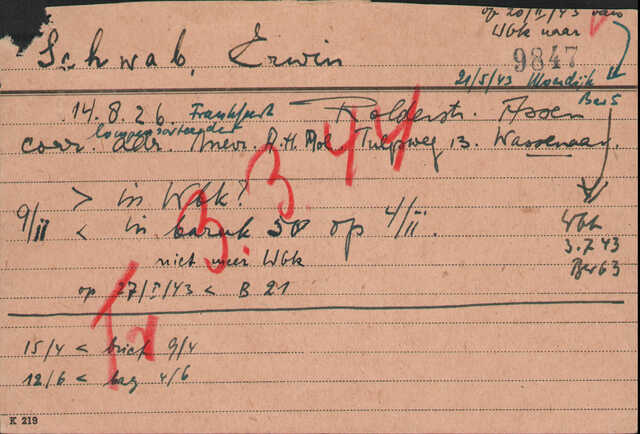 op 20/II/43 van
Wbk naar
Schwab, Erwin
9847
21/5/43 Moerdijk
Ber 5
14.8.26. Frankfurt Rolderstr. Assen
corr. adr. Mevr. Mol Tulpweg 13. Wassenaar.
3.3.44
> in Wbk?
9/II < in barak 58 op 4/II.
niet meer Wbk
Wbk
3.7.43
Bar 63
op 27/I/43 < B 21
15/4 < brief 9/4
12/6 < brf 4/6
K 219